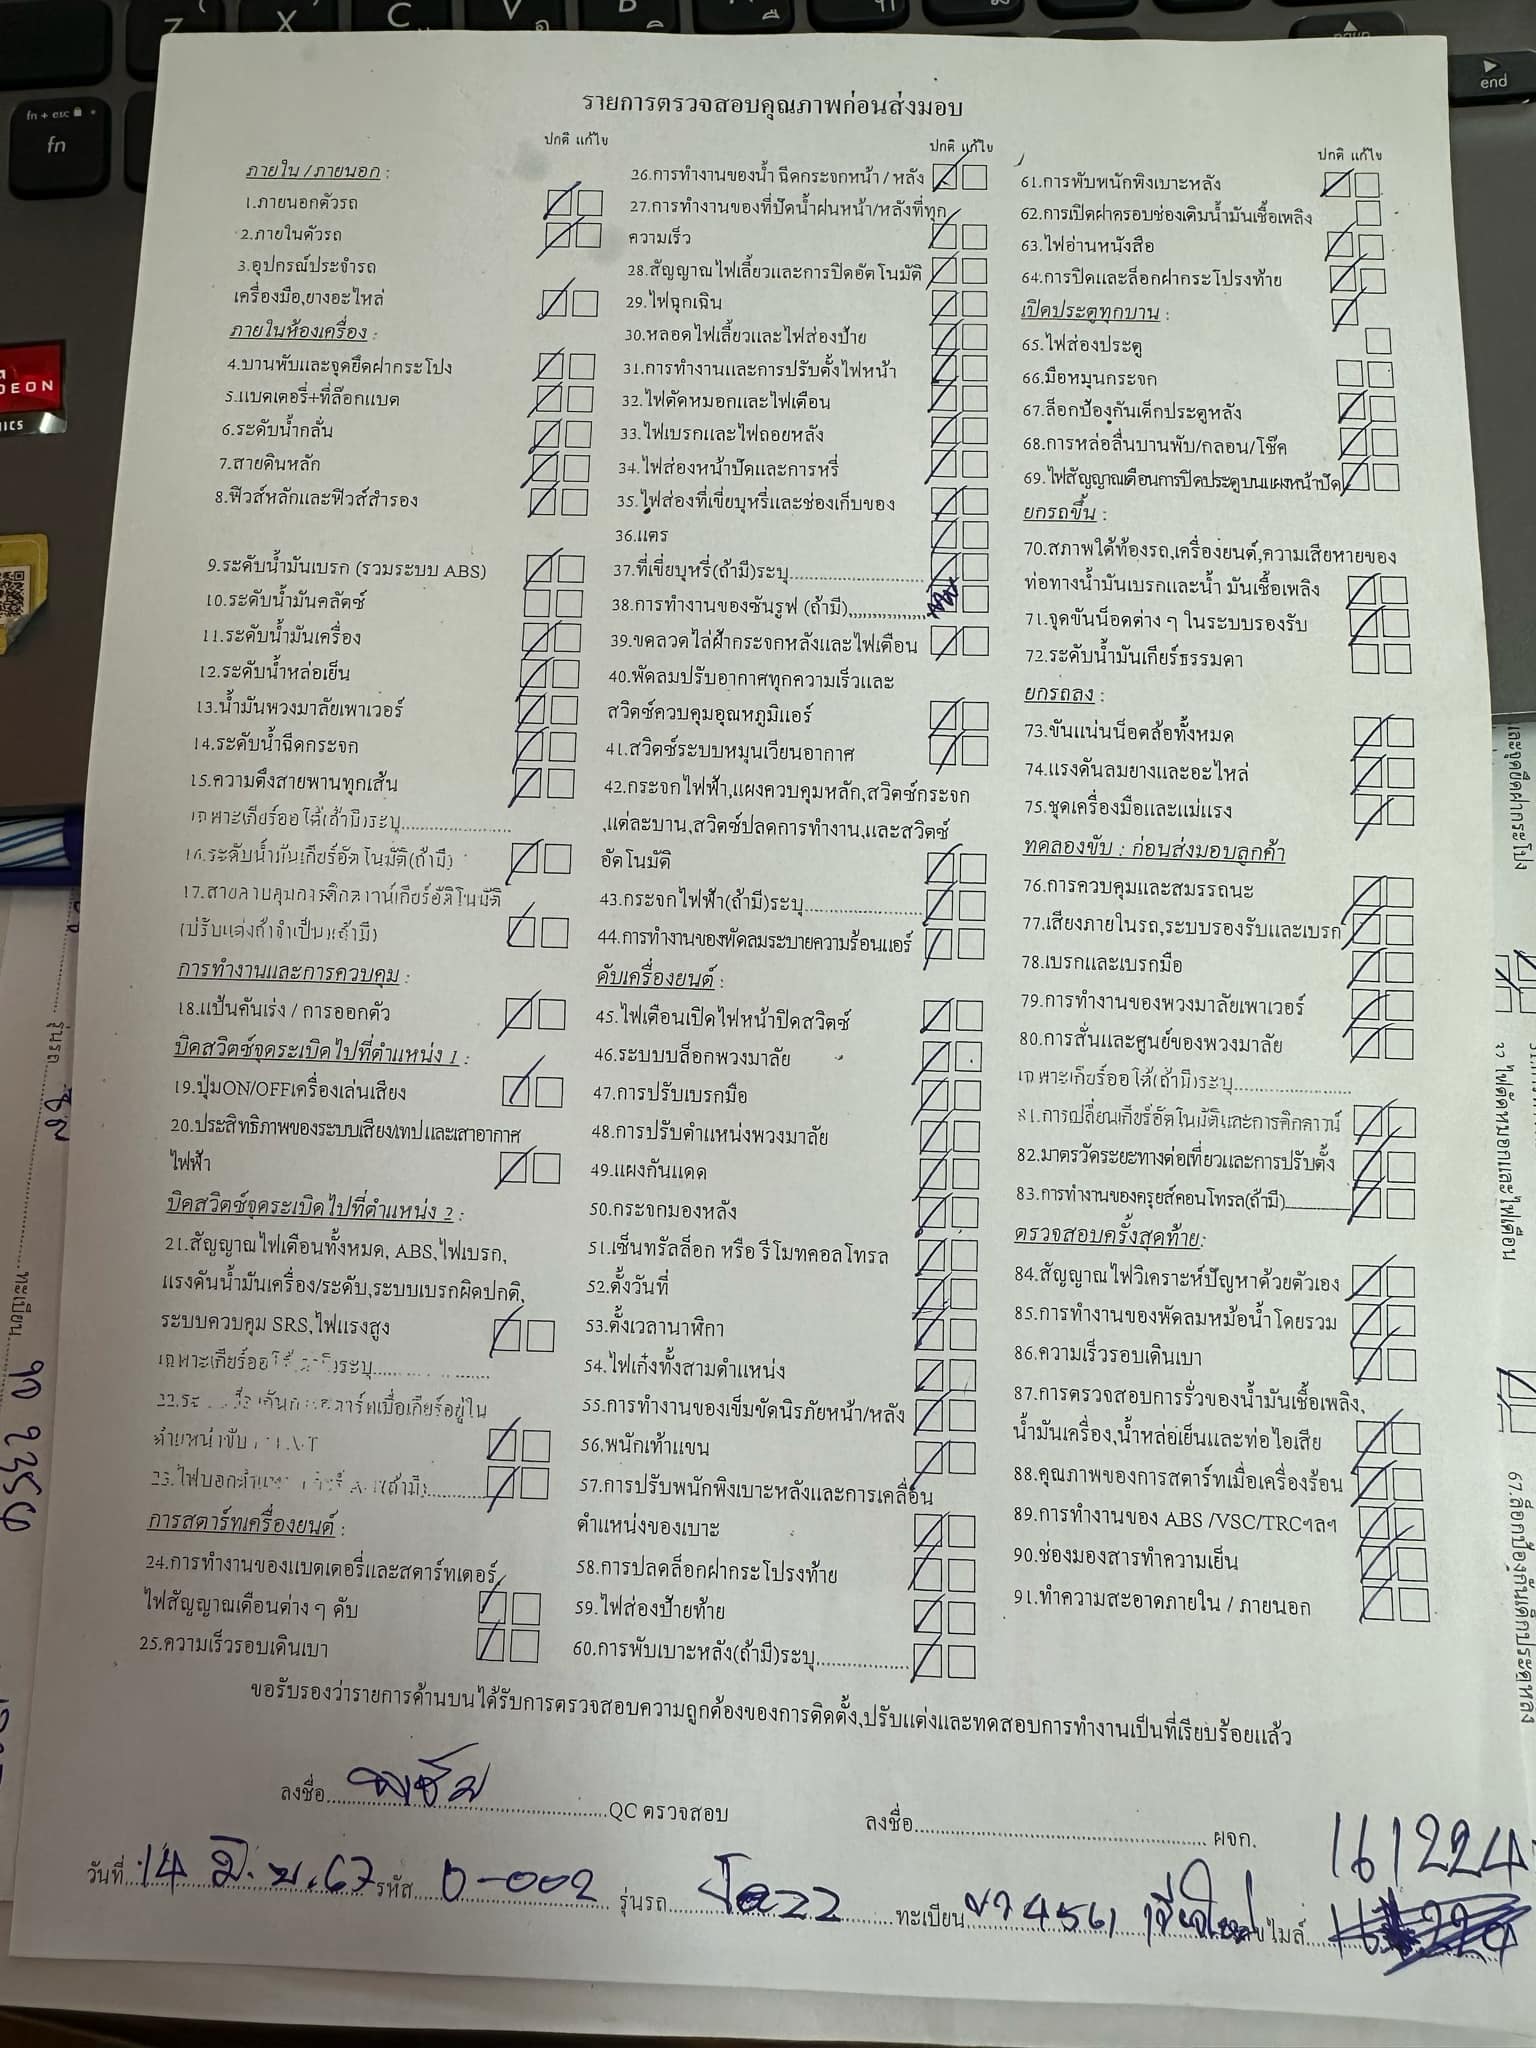 รายการตรวจสอบคุณภาพก่อนส่งมอบ
ปกติ แก้ไข
ภายใน / ภายนอก :
1.ภายนอกตัวรถ
2.ภายในตัวรถ
3.อุปกรณ์ประจำรถ
เครื่องมือ,ยางอะไหล่
ภายในห้องเครื่อง :
4.บานพับและจุดยึดฝากระโปง
5.แบตเตอรี่+ที่ล๊อกแบต
6.ระดับน้ำกลั่น
7.สายดินหลัก
8.ฟิวส์หลักและฟิวส์สำรอง
9.ระดับน้ำมันเบรก (รวมระบบ ABS)
10.ระดับน้ำมันคลัตช์
11.ระดับน้ำมันเครื่อง
12.ระดับน้ำหล่อเย็น
13.น้ำมันพวงมาลัยเพาเวอร์
14.ระดับน้ำฉีดกระจก
15.ความตึงสายพานทุกเส้น
เฉพาะเกียร์ออโต้(ถ้ามี)ระบุ
16.ระดับน้ำมันเกียร์อัตโนมัติ(ถ้ามี)
17.สายควบคุมการคิกดาวน์เกียร์อัติโนมัติ
(ปรับแต่งถ้าจำเป็น)(ถ้ามี)
การทำงานและการควบคุม :
18.แป้นคันเร่ง / การออกตัว
บิดสวิตช์จุดระเบิดไปที่ตำแหน่ง 1 :
19.ปุ่มON/OFFเครื่องเล่นเสียง
20.ประสิทธิภาพของระบบเสียง/เทป และเสาอากาศ
ไฟฟ้า
บิดสวิตช์จุดระเบิดไปที่ตำแหน่ง 2 :
21.สัญญาณไฟเตือนทั้งหมด, ABS,ไฟเบรก,
แรงดันน้ำมันเครื่อง/ระดับ,ระบบเบรกผิดปกติ,
ระบบควบคุม SRS,ไฟแรงสูง
เฉพาะเกียร์ออโต้ ระบุ
เมื่อเกียร์อยู่ใน
23.ไฟบอก (ถ้ามี)
การสตาร์ทเครื่องยนต์ :
24.การทำงานของแบตเตอรี่และสตาร์ทเตอร์,
ไฟสัญญาณเตือนต่าง ๆ ดับ
25.ความเร็วรอบเดินเบา
ปกติ แก้ไข
26.การทำงานของน้ำ ฉีดกระจกหน้า / หลัง
27.การทำงานของที่ปัดน้ำฝนหน้า/หลังที่ทุก
ความเร็ว
28.สัญญาณไฟเลี้ยวและการปิดอัตโนมัติ
29.ไฟฉุกเฉิน
30.หลอดไฟเลี้ยวและไฟส่องป้าย
31.การทำงานและการปรับตั้งไฟหน้า
32.ไฟตัดหมอกและไฟเตือน
33.ไฟเบรกและไฟถอยหลัง
34.ไฟส่องหน้าปัดและการหรี่
35.ไฟส่องที่เขี่ยบุหรี่และช่องเก็บของ
36.แตร
37.ที่เขี่ยบุหรี่(ถ้ามี)ระบุ
38.การทำงานของซันรูฟ (ถ้ามี)
39.ขดลวดไล่ฝ้ากระจกหลังและไฟเตือน
40.พัดลมปรับอากาศทุกความเร็วและ
สวิตช์ควบคุมอุณหภูมิแอร์
41.สวิตช์ระบบหมุนเวียนอากาศ
42.กระจกไฟฟ้า,แผงควบคุมหลัก,สวิตช์กระจก
,แต่ละบาน,สวิตช์ปลดการทำงาน,และสวิตช์
อัตโนมัติ
43.กระจกไฟฟ้า(ถ้ามี)ระบุ
44.การทำงานของพัดลมระบายความร้อนแอร์
ดับเครื่องยนต์ :
45.ไฟเตือนเปิดไฟหน้าปิดสวิตช์
46.ระบบบล็อกพวงมาลัย
47.การปรับเบรกมือ
48.การปรับตำแหน่งพวงมาลัย
49.แผงกันแดด
50.กระจกมองหลัง
51.เซ็นทรัลล็อก หรือ รีโมทคอลโทรล
52.ตั้งวันที่
53.ตั้งเวลานาฬิกา
54.ไฟเก๋งทั้งสามตำแหน่ง
55.การทำงานของเข็มขัดนิรภัยหน้า/หลัง
56.พนักเท้าแขน
57.การปรับพนักพิงเบาะหลังและการเคลื่อน
ตำแหน่งของเบาะ
58.การปลดล็อกฝากระโปรงท้าย
59.ไฟส่องป้ายท้าย
60.การพับเบาะหลัง(ถ้ามี)ระบุ
ปกติ แก้ไข
61.การพับพนักพิงเบาะหลัง
62.การเปิดฝาครอบช่องเติมน้ำมันเชื้อเพลิง
63.ไฟอ่านหนังสือ
64.การปิดและล็อกฝากระโปรงท้าย
เปิดประตูทุกบาน :
65.ไฟส่องประตู
66.มือหมุนกระจก
67.ล็อกป้องกันเด็กประตูหลัง
68.การหล่อลื่นบานพับ/กลอน/โช๊ค
69.ไฟสัญญาณเตือนการปิดประตูบนแผงหน้าปัด
ยกรถขึ้น :
70.สภาพใต้ท้องรถ,เครื่องยนต์,ความเสียหายของ
ท่อทางน้ำมันเบรกและน้ำ มันเชื้อเพลิง
71.จุดขันน็อตต่าง ๆ ในระบบรองรับ
72.ระดับน้ำมันเกียร์ธรรมดา
ยกรถลง :
73.ขันแน่นน็อตล้อทั้งหมด
74.แรงดันลมยางและอะไหล่
75.ชุดเครื่องมือและแม่แรง
ทดลองขับ : ก่อนส่งมอบลูกค้า
76.การควบคุมและสมรรถนะ
77.เสียงภายในรถ,ระบบรองรับและเบรก
78.เบรกและเบรกมือ
79.การทำงานของพวงมาลัยเพาเวอร์
80.การสั่นและศูนย์ของพวงมาลัย
เฉพาะเกียร์ออโต้(ถ้ามี)ระบุ
81.การเปลี่ยนเกียร์อัตโนมัติและการคิกดาวน์
82.มาตรวัดระยะทางต่อเที่ยวและการปรับตั้ง
83.การทำงานของครุยส์คอนโทรล(ถ้ามี)
ตรวจสอบครั้งสุดท้าย:
84.สัญญาณไฟวิเคราะห์ปัญหาด้วยตัวเอง
85.การทำงานของพัดลมหม้อน้ำโดยรวม
86.ความเร็วรอบเดินเบา
87.การตรวจสอบการรั่วของน้ำมันเชื้อเพลิง,
น้ำมันเครื่อง,น้ำหล่อเย็นและท่อไอเสีย
88.คุณภาพของการสตาร์ทเมื่อเครื่องร้อน
89.การทำงานของ ABS /VSC/TRCฯลฯ
90.ช่องมองสารทำความเย็น
91.ทำความสะอาดภายใน / ภายนอก
ขอรับรองว่ารายการด้านบนได้รับการตรวจสอบความถูกต้องของการติดตั้ง,ปรับแต่งและทดสอบการทำงานเป็นที่เรียบร้อยแล้ว
ลงชื่อ QC ตรวจสอบ ลงชื่อ ผจก.
161224
วันที่ 14 มิ.ย.67 รหัส 0-002 รุ่นรถ Jazz ทะเบียน ขว 4561 เชียงใหม่ เลขไมล์
fn + esc
fn
Z
X
C
V
B
end